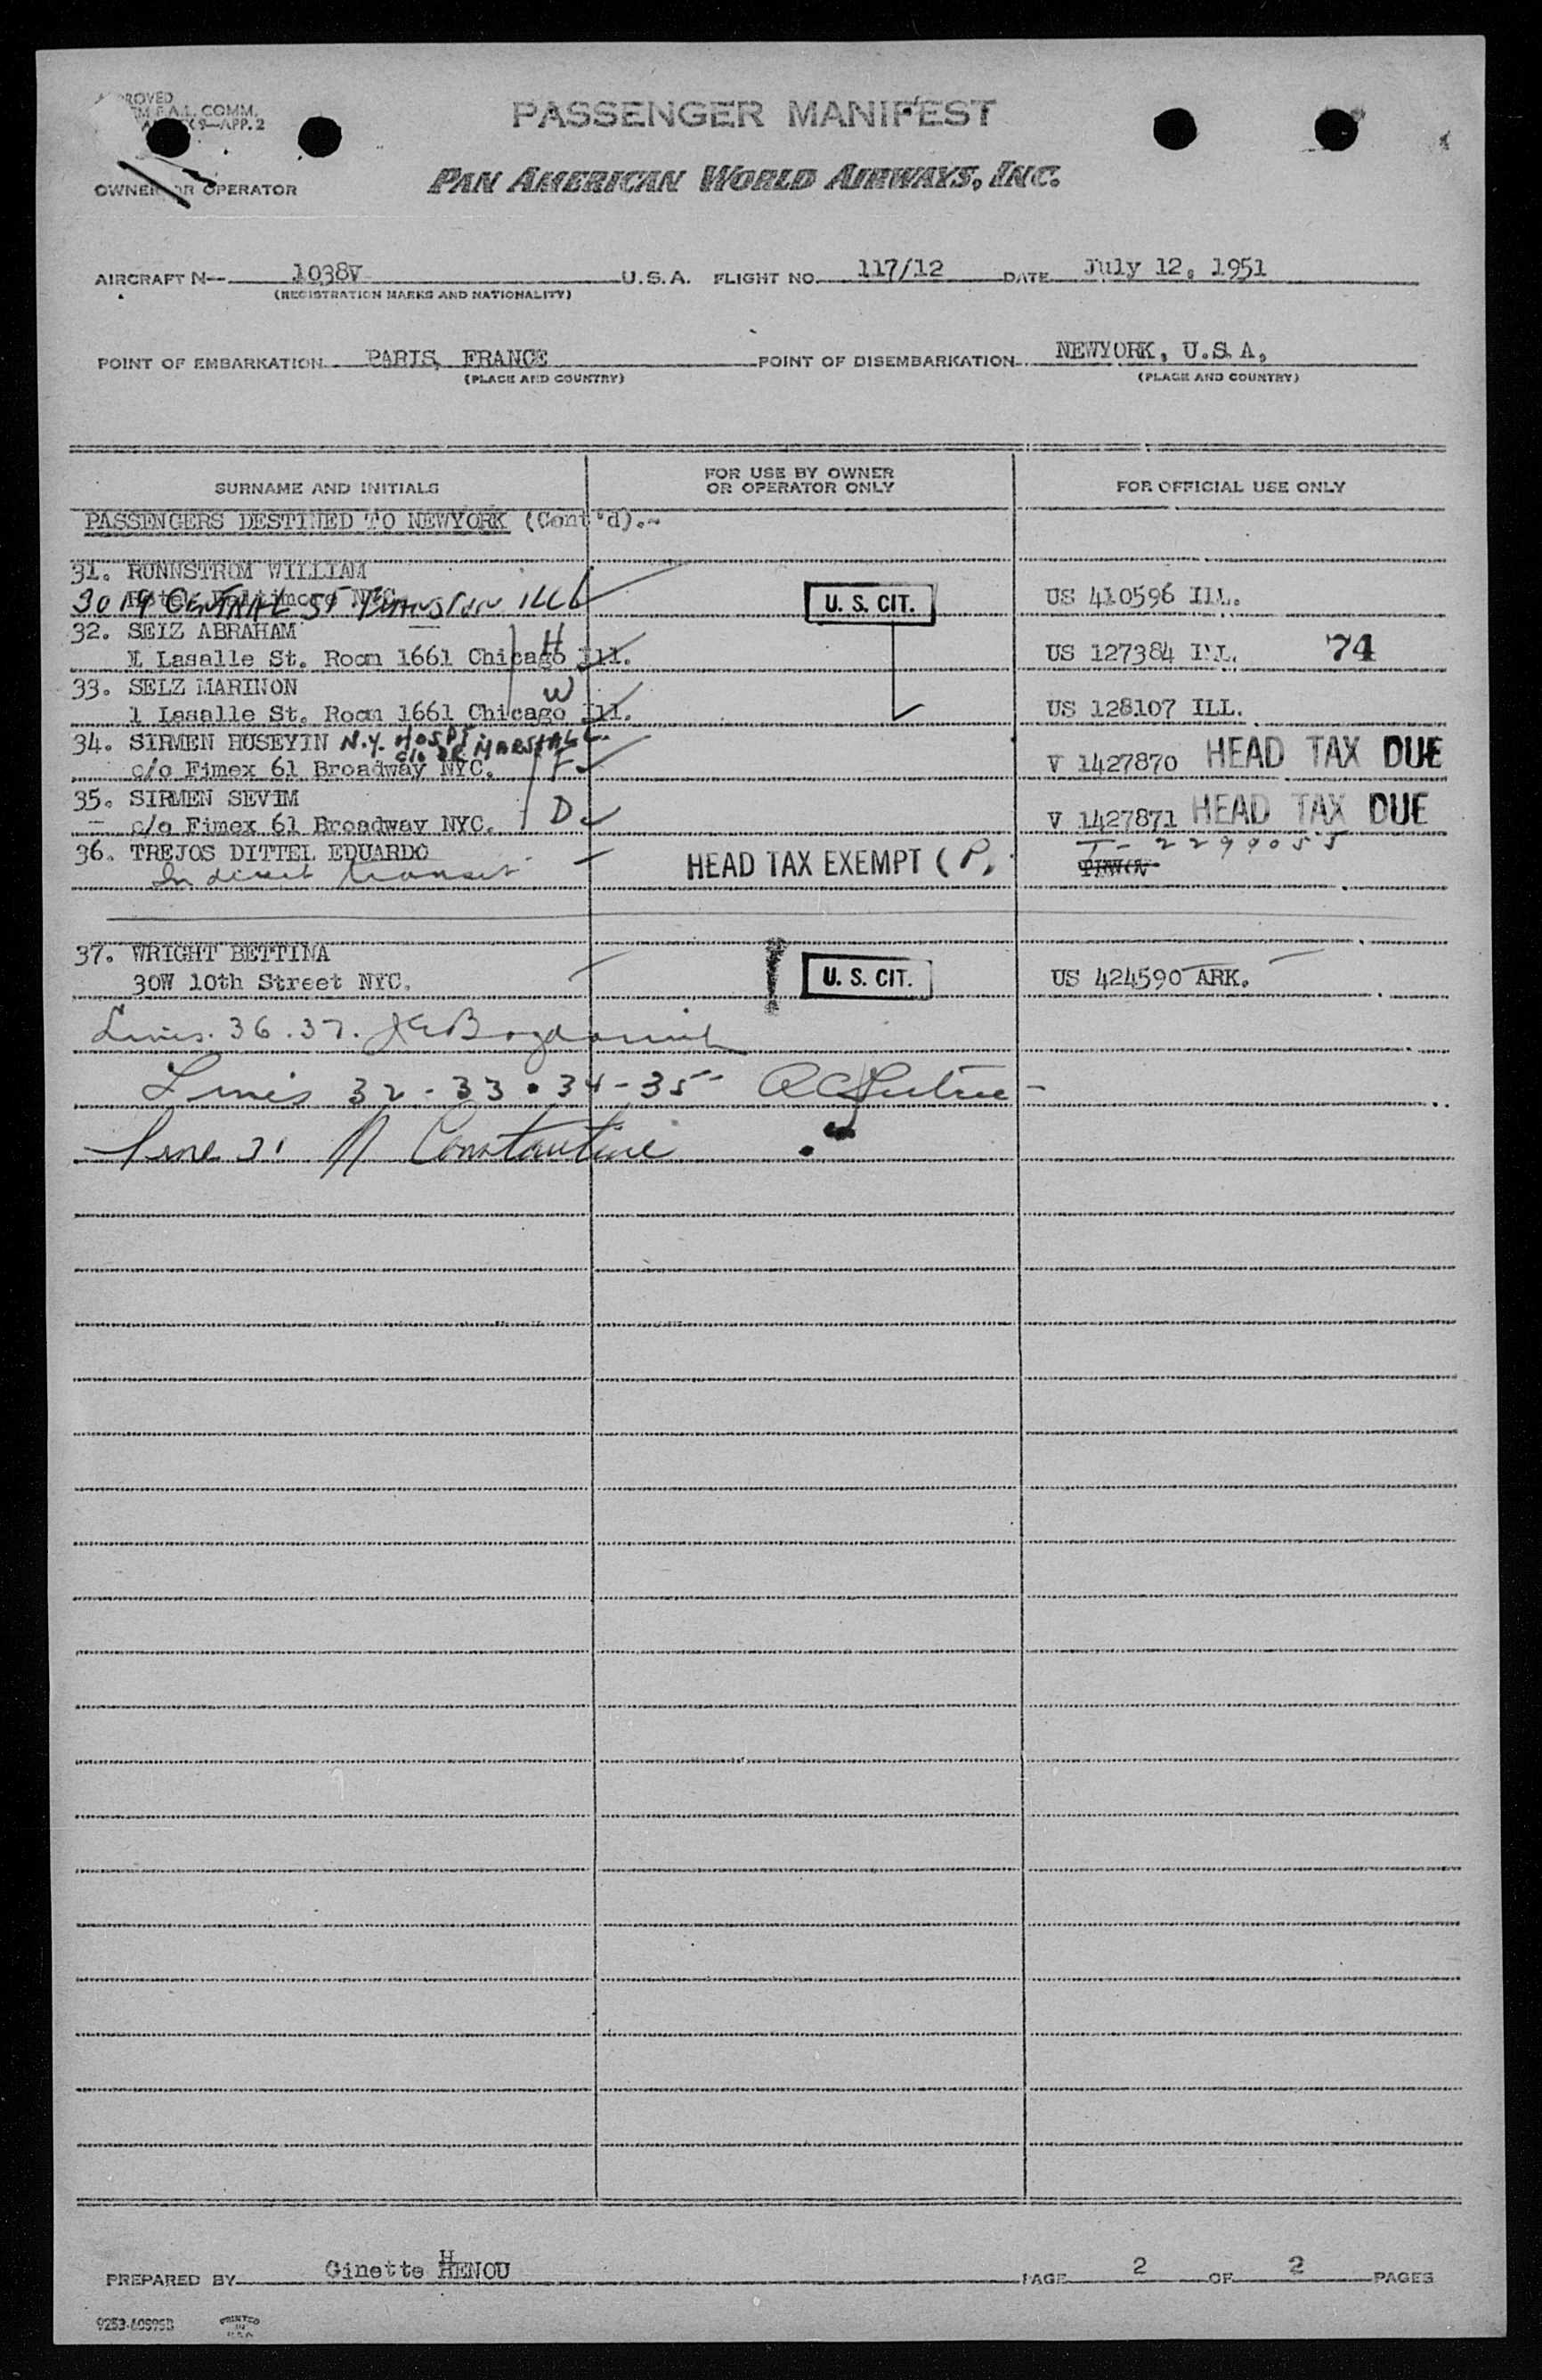 PASSENGER MANIFEST
COMM.
APP. 2
OWNER OR OPERATOR
PAN AMERICAN WORLD AIRWAYS, INC.
AIRCRAFT N-- 1038V U.S.A. FLIGHT NO. 117/12 DATE July 12, 1951
(REGISTRATION MARKS AND NATIONALITY)
POINT OF EMBARKATION PARIS, FRANCE POINT OF DISEMBARKATION NEWYORK, U.S.A,
(PLACE AND COUNTRY) (PLACE AND COUNTRY)
SURNAME AND INITIALS FOR USE BY OWNER OR OPERATOR ONLY FOR OFFICIAL USE ONLY
PASSENGERS DESTINED TO NEWYORK (Cont'd).-
31. RUNNSTROM WILLIAM
3019 CENTRAL ST EVANSTON ILL U. S. CIT. US 410596 ILL.
32. SELZ ABRAHAM H
1 Lasalle St. Room 1661 Chicago Ill. US 127384 ILL. 74
33. SELZ MARINON W
1 Lasalle St. Room 1661 Chicago Ill. US 128107 ILL.
34. SIRMEN HUSEYIN N.Y. HOSPT
c/o DR MARSHALL
c/o Fimex 61 Broadway NYC. F V 1427870 HEAD TAX DUE
35. SIRMEN SEVIM D
c/o Fimex 61 Broadway NYC. V 1427871 HEAD TAX DUE
36. TREJOS DITTEL EDUARDO HEAD TAX EXEMPT (P) T-2299055
In direct transit
37. WRIGHT BETTINA
30W 10th Street NYC. U. S. CIT. US 424590 ARK.
Lines. 36.37.
Lines 32-33.34-35-
Line 31 Constantine
PREPARED BY Ginette HENOU PAGE 2 OF 2 PAGES
PRINTED
IN
U.S.A.